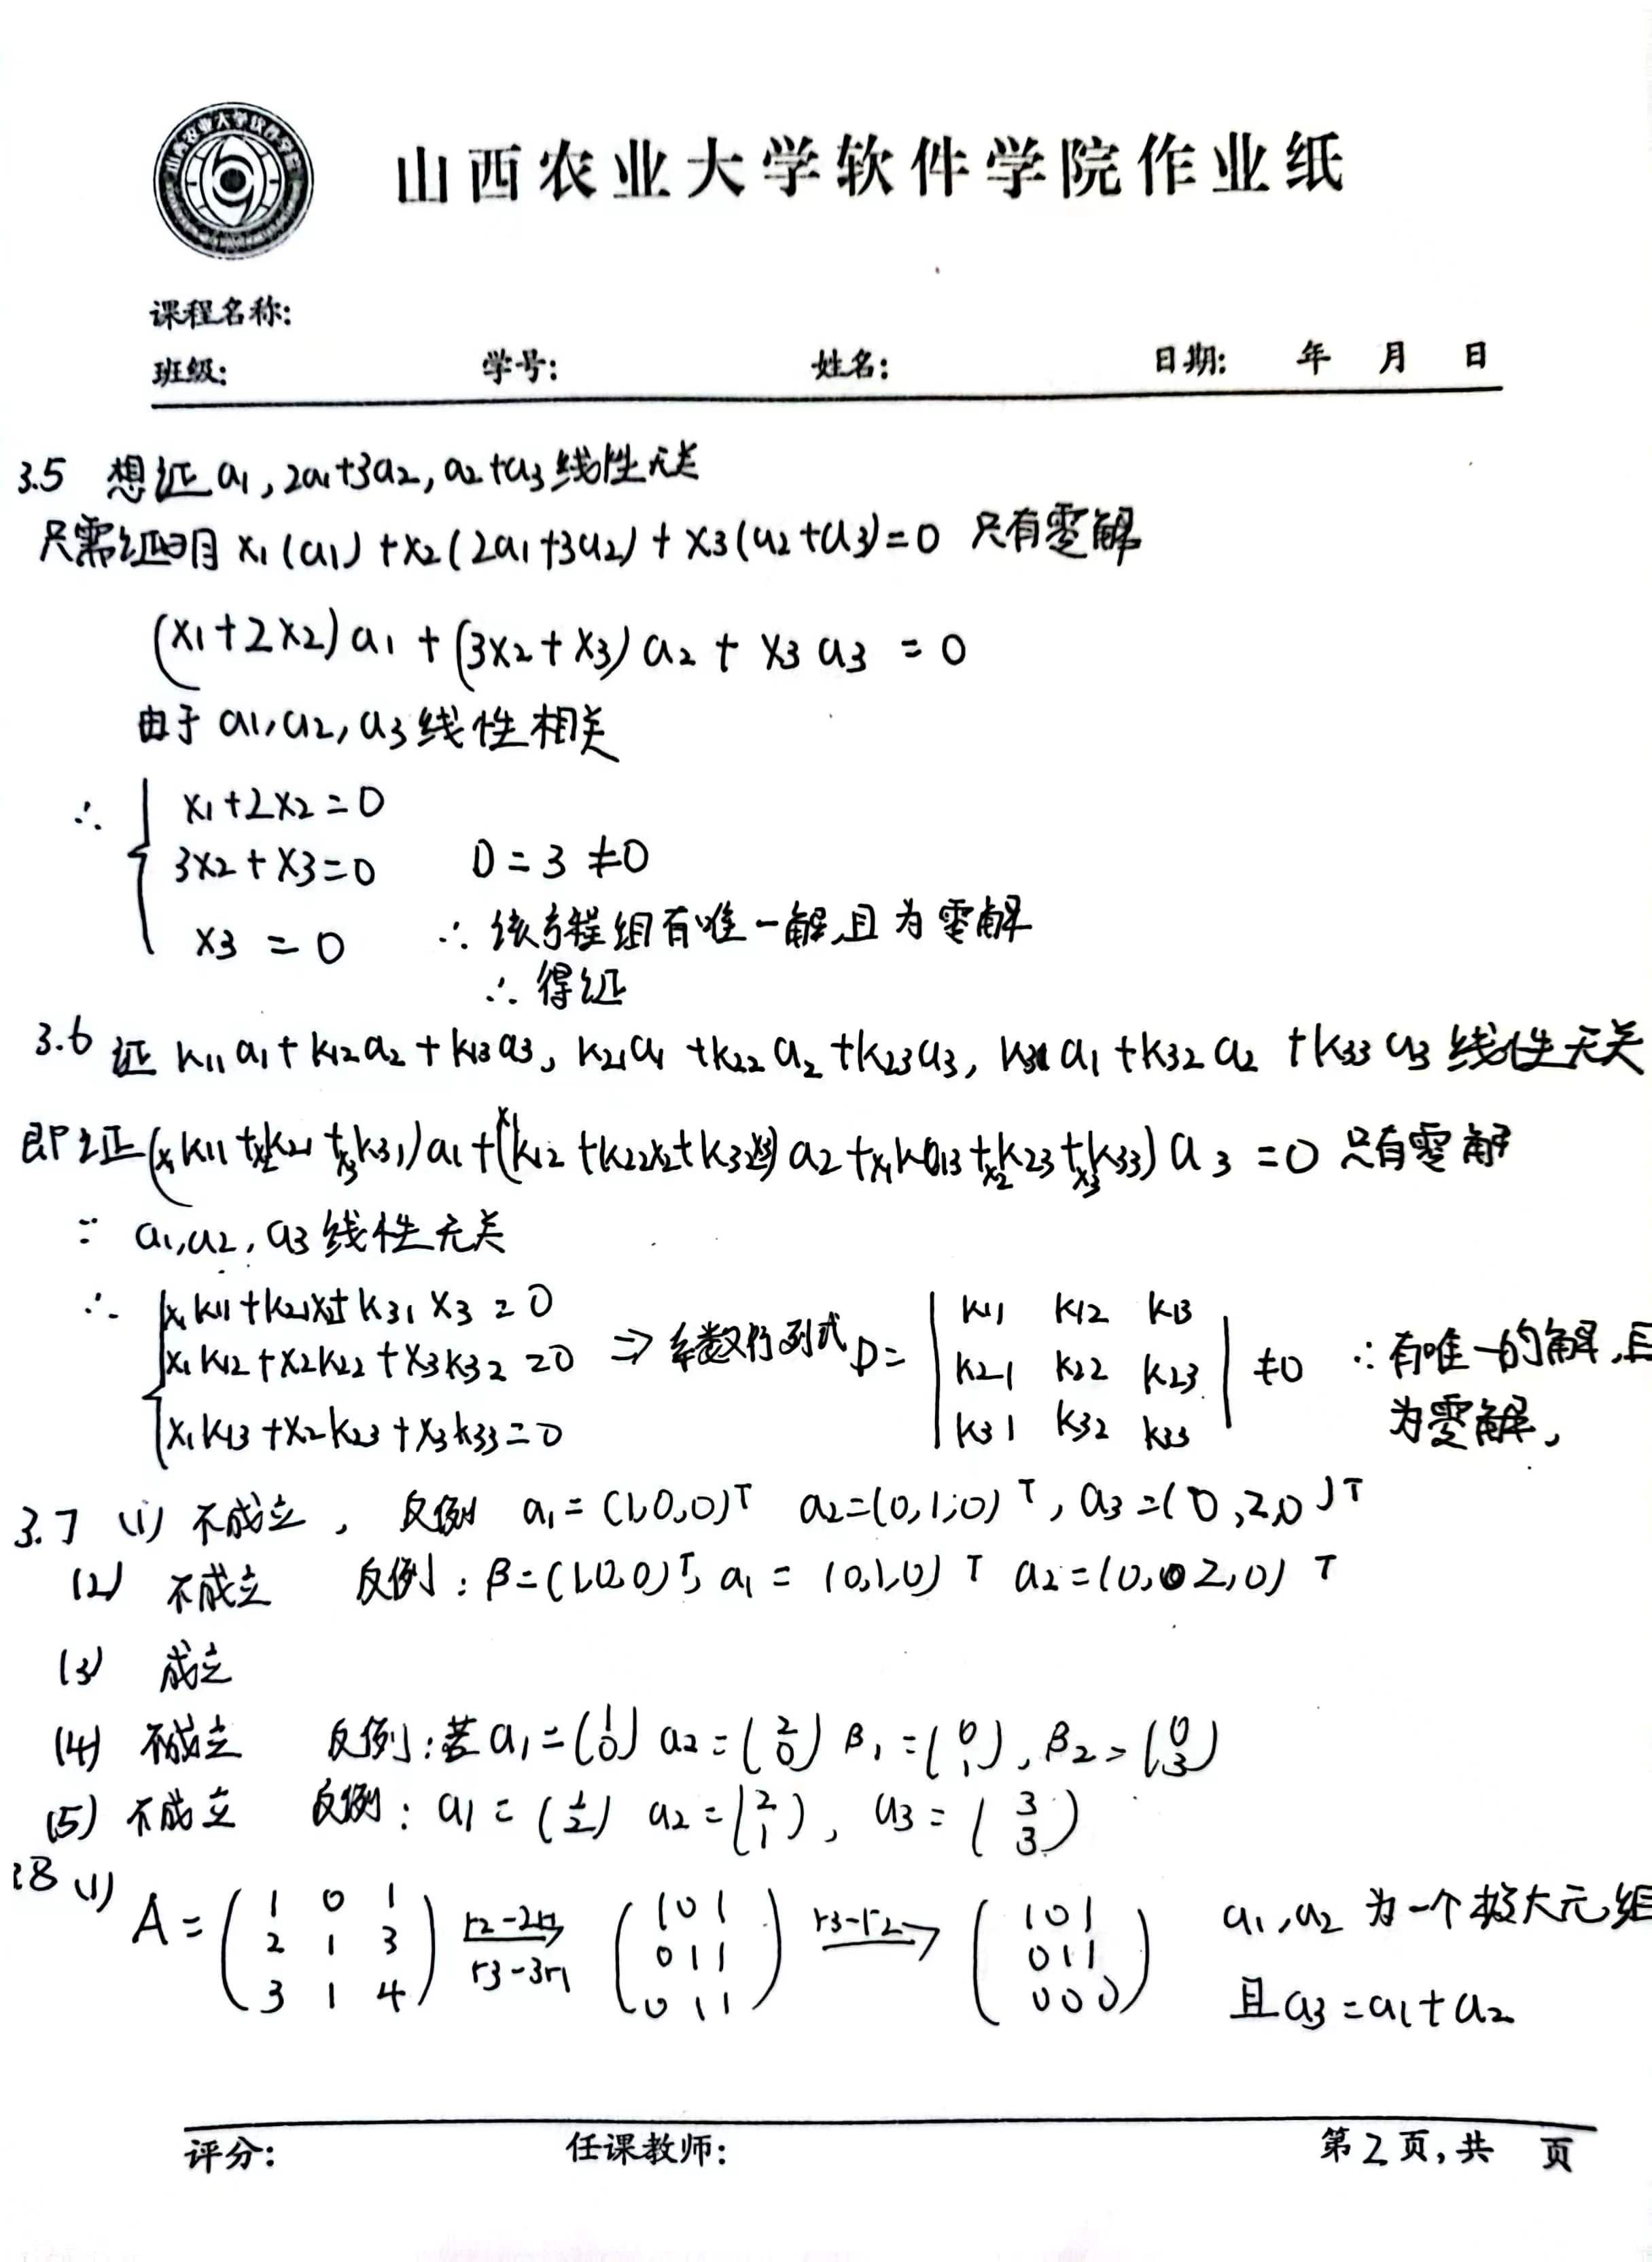 山西农业大学软件学院作业纸
课程名称:
班级: 学号: 姓名: 日期: 年 月 日
3.5 想证 a1, 2a1+3a2, a2+a3 线性无关
只需证明 x1(a1)+x2(2a1+3a2)+x3(a2+a3)=0 只有零解
(x1+2x2)a1+(3x2+x3)a2+x3a3=0
由于 a1,a2,a3 线性相关
∴ { x1+2x2=0
3x2+x3=0 D=3≠0
x3=0 ∴ 该方程组有唯一解,且为零解
∴ 得证
3.6 证 k11a1+k12a2+k13a3, k21a1+k22a2+k23a3, k31a1+k32a2+k33a3 线性无关
即证(x1k11+x2k21+x3k31)a1+(x1k12+k22x2+k32x3)a2+x1k13+x2k23+x3k33)a3=0 只有零解
∵ a1,a2,a3 线性无关
∴ { x1k11+k21x2+k31x3=0
x1k12+x2k22+x3k32=0 ⇒ 系数行列式 D= | k11 k12 k13 | ≠0 ∴有唯一的解,且
k21 k22 k23
x1k13+x2k23+x3k33=0 k31 k32 k33 为零解,
3.7 (1) 不成立, 反例 a1=(1,0,0)T a2=(0,1,0)T, a3=(0,2,0)T
(2) 不成立 反例: β=(1,0,0)T, a1=(0,1,0)T a2=(0,2,0)T
(3) 成立
(4) 不成立 反例:若 a1=(1 0) a2=(2 0) β1=(0 1), β2=(0 3)
(5) 不成立 反例: a1=(1 2) a2=(2 1), a3=(3 3)
38 (1) A=(1 0 1 r2-2r1 (1 0 1 r3-r2 (1 0 1 a1,a2 为一个极大无组
2 1 3 → 0 1 1 → 0 1 1
3 1 4) r3-3r1 0 1 1) 0 0 0) 且a3=a1+a2
评分: 任课教师: 第2页,共 页